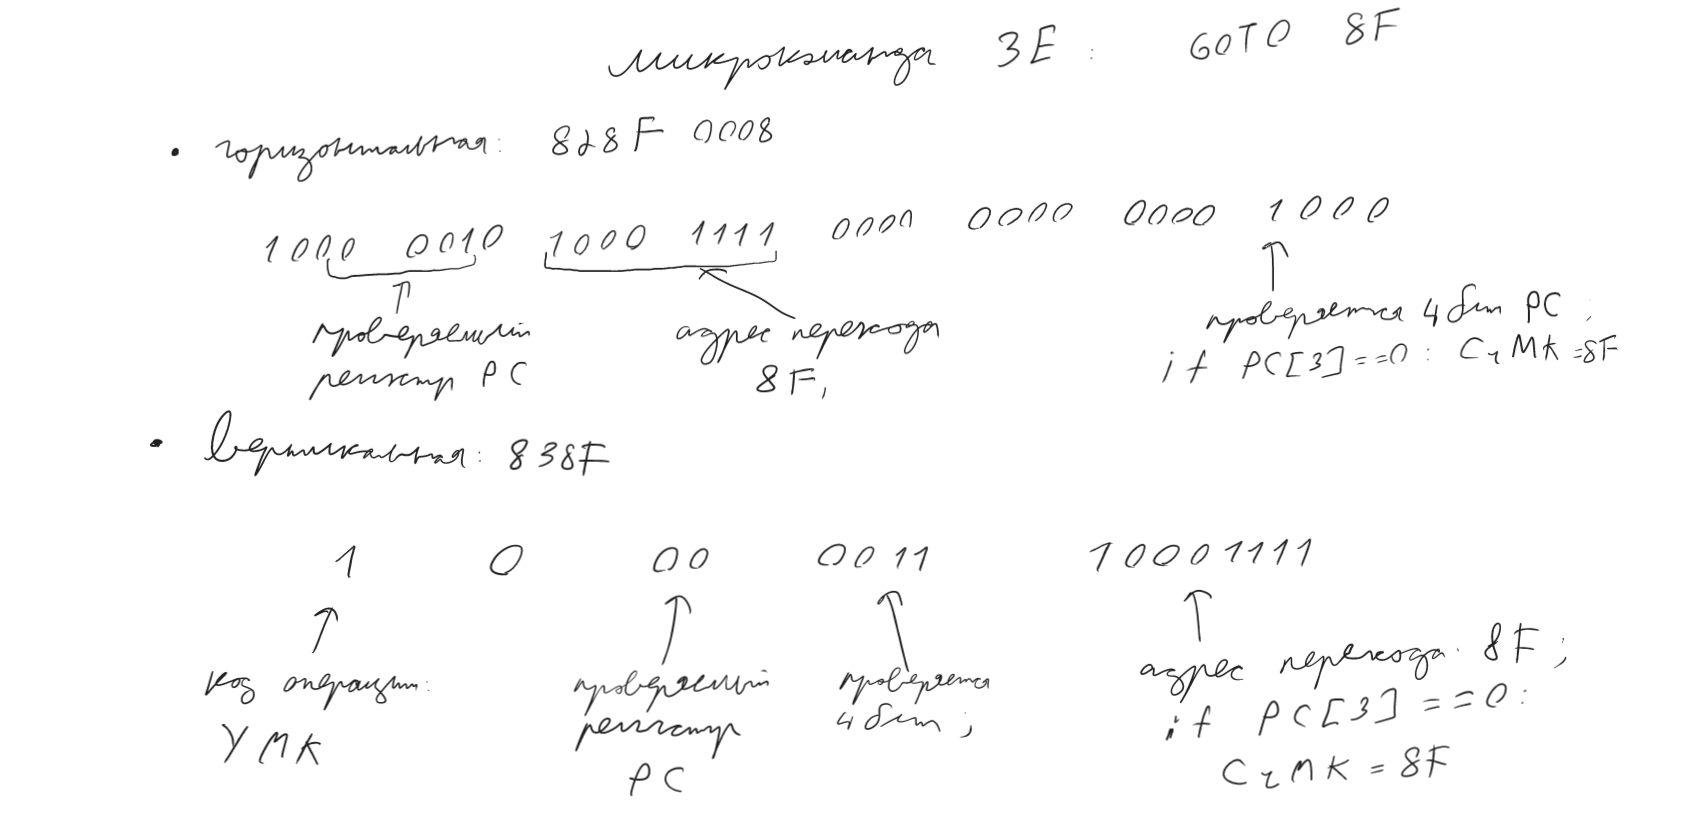 микрокоманда 3E : GOTO 8F
• горизонтальная: 828F 0008
1000 0010 1000 1111 0000 0000 0000 1000
проверяемый
регистр PC
адрес перехода
8F,
проверяется 4 бит PC ;
if PC[3]==0 : СчМК =8F
• Вертикальная: 838F
1 0 00 0011 10001111
код операции:
УМК
проверяемый
регистр
PC
проверяется
4 бит ;
адрес перехода 8F ;
if PC[3] ==0 :
СчМК = 8F